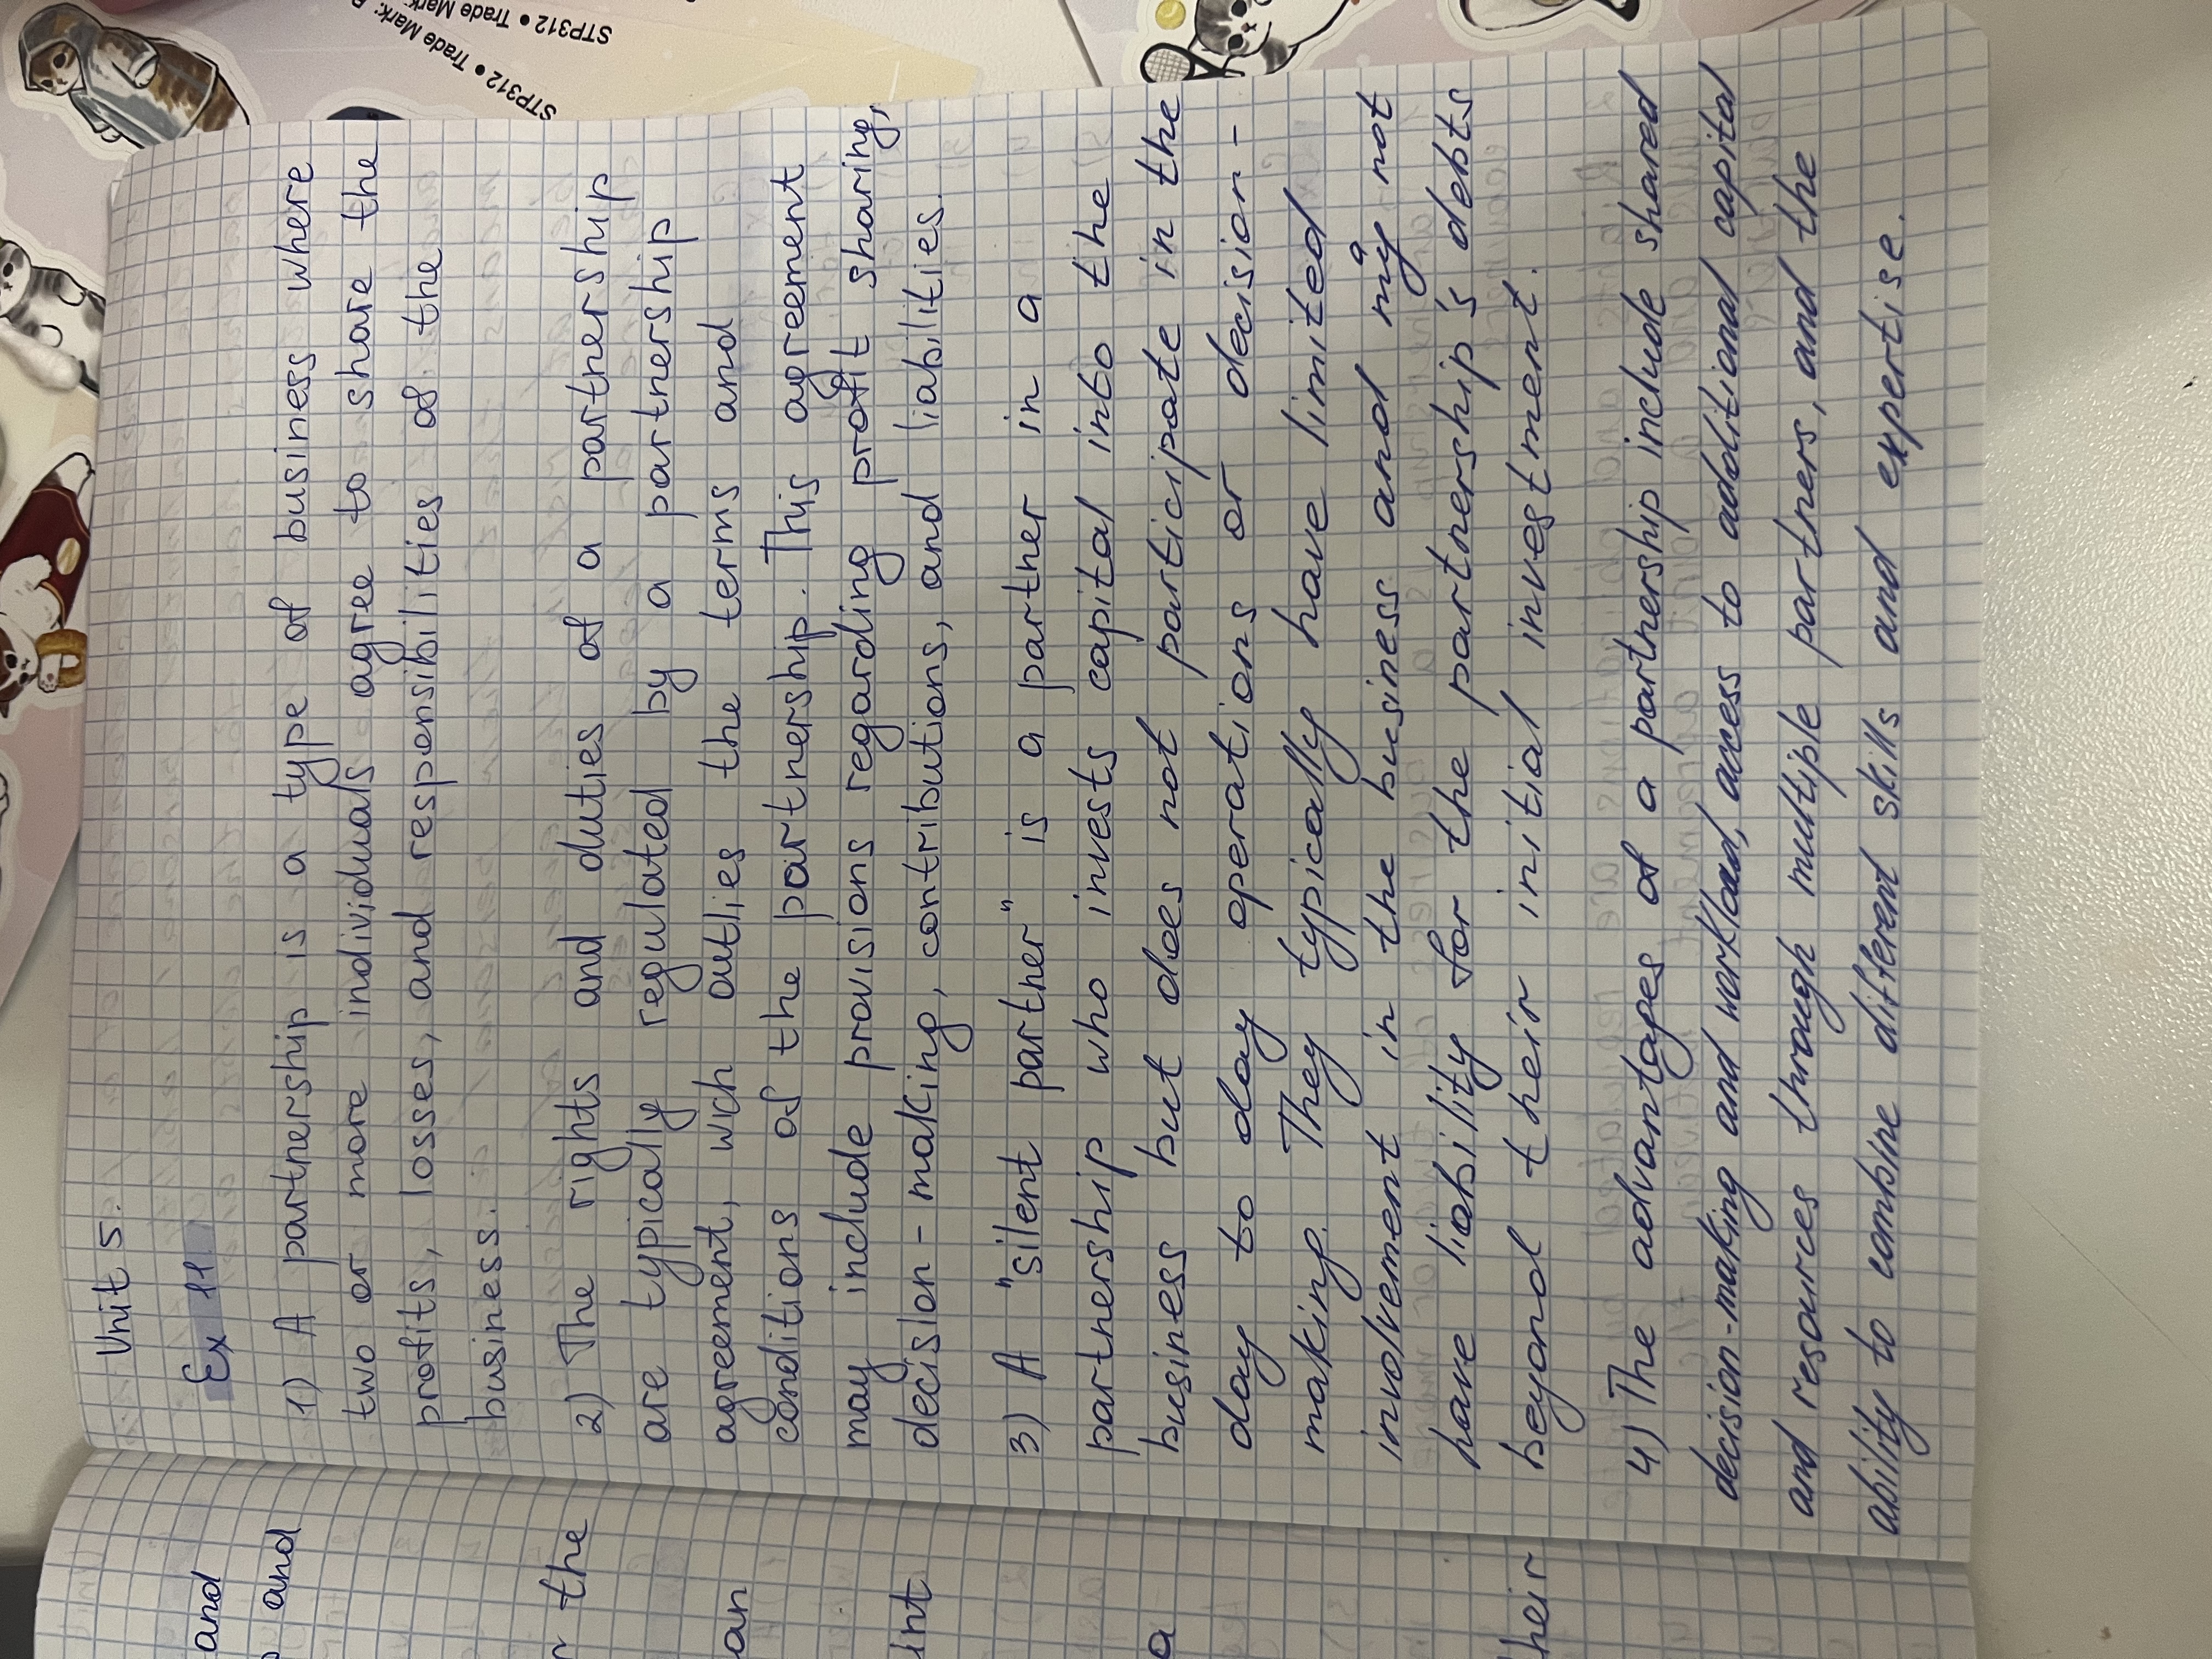 Unit 5.
Ex 11
1) A partnership is a type of business where
two or more individuals agree to share the
profits, losses, and responsibilities of the
business.
2) The rights and duties of a partnership
are typically regulated by a partnership
agreement, wich outlies the terms and
conditions of the partnership. This agreement
may include provisions regarding profit sharing,
decision-making, contributions, and liabilities.
3) A "silent parther" is a partner in a
partnership who invests capital into the
business but does not participate in the
day to day operations or decision-
making. They typically have limited
involvement in the business and may not
have liability for the partnership's debts
beyond their initial investment.
4) The advantages of a partnership include shared
decision-making and workload, access to additional capital
and resources through multiple partners, and the
ability to combine different skills and expertise.
and
and
the
an
int
a
heir
STP312 • Trade Mark:
STP312 • Trade Mark